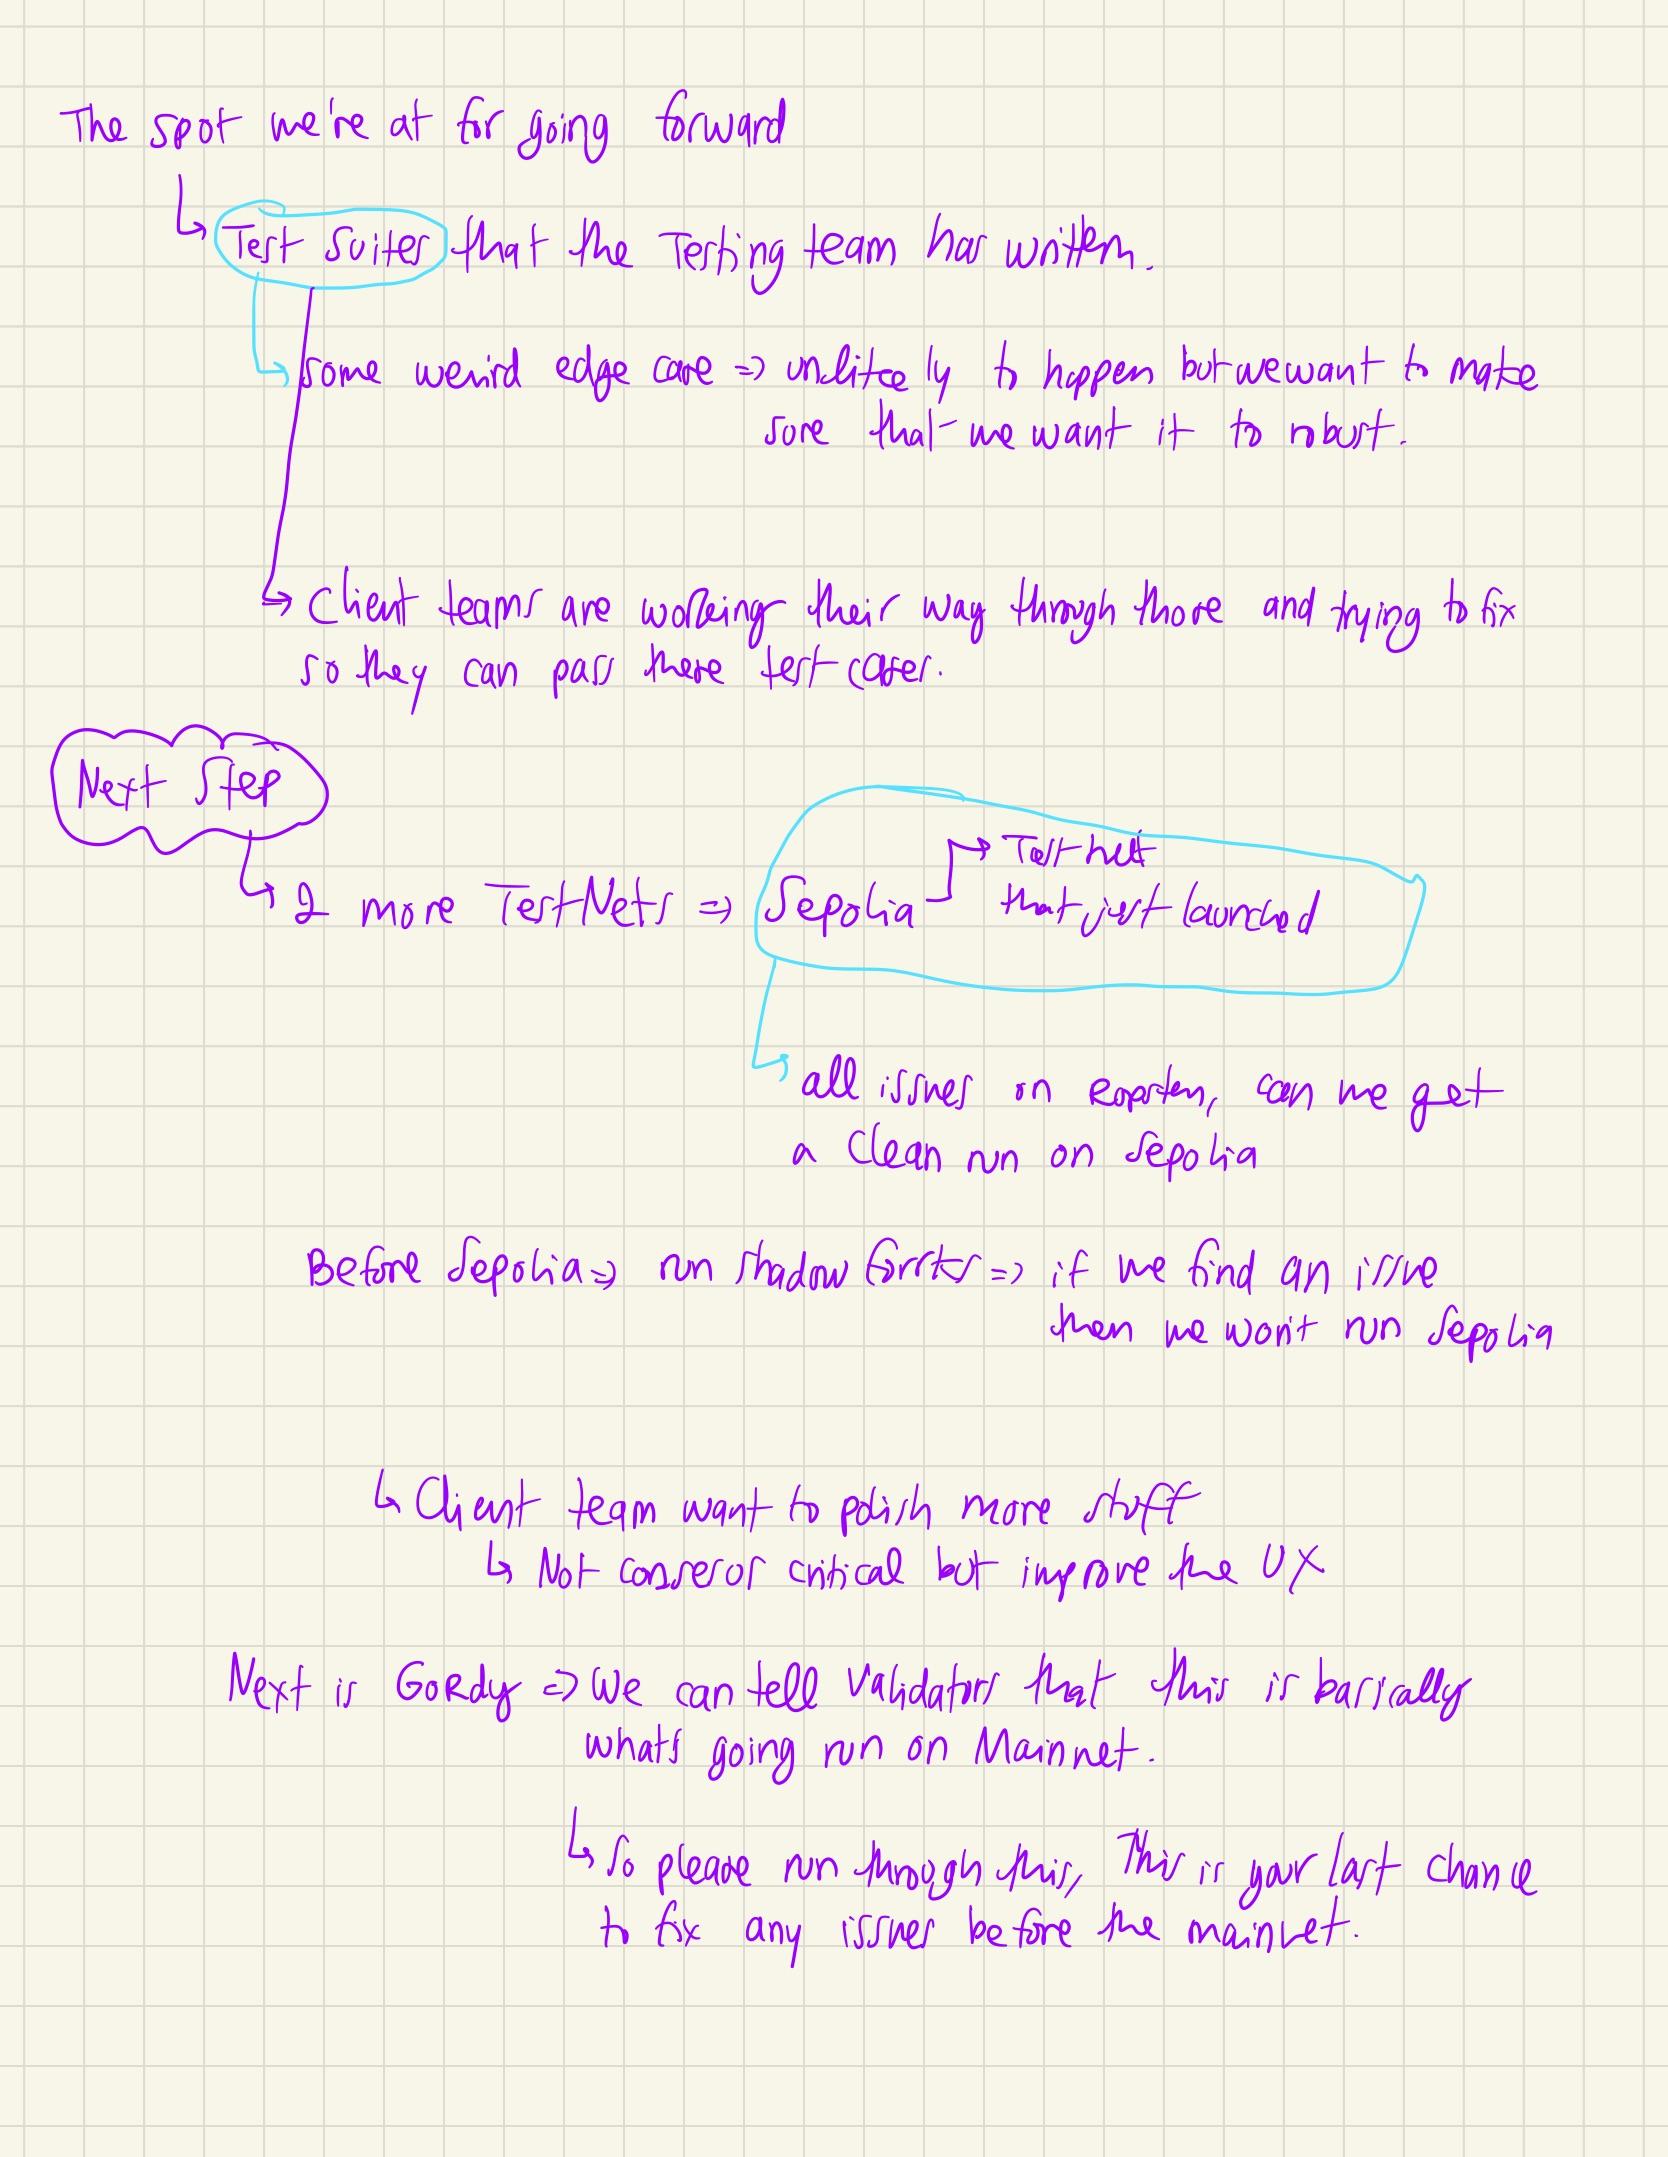 The spot we're at for going forward
Test Suites that the Testing team has written.
some weird edge case => unlikely to happen but we want to make
sure that we want it to robust.
Client teams are working their way through those and trying to fix
so they can pass these test cases.
Next Step
2 more TestNets => Sepolia
Testnet
that just launched
all issues on Ropsten, can we get
a Clean run on Sepolia
Before Sepolia => run shadow forks => if we find an issue
then we won't run Sepolia
Client team want to polish more stuff
Not critical but improve the UX
Next is Gordy => We can tell Validators that this is basically
whats going run on Mainnet.
So please run through this, This is your last chance
to fix any issues before the mainnet.